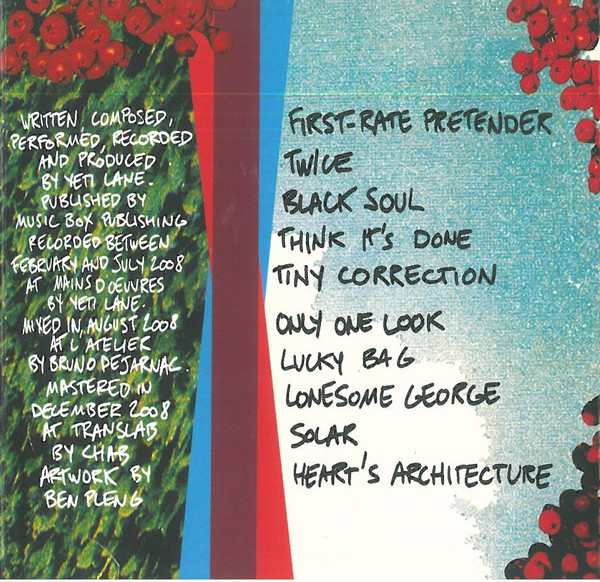 WRITTEN COMPOSED,
PERFORMED, RECORDED
AND PRODUCED
BY YETI LANE.
PUBLISHED BY
MUSIC BOX PUBLISHING
RECORDED BETWEEN
FEBRUARY AND JULY 2008
AT MAINS D'OEUVRES
BY YETI LANE.
MIXED IN, AUGUST 2008
AT L'ATELIER
BY BRUNO DEJARNAC.
MASTERED IN
DECEMBER 2008
AT TRANSLAB
BY CHAB
ARTWORK BY
BEN PLENG
FIRST-RATE PRETENDER
TWICE
BLACK SOUL
THINK IT'S DONE
TINY CORRECTION
ONLY ONE LOOK
LUCKY BAG
LONESOME GEORGE
SOLAR
HEART'S ARCHITECTURE